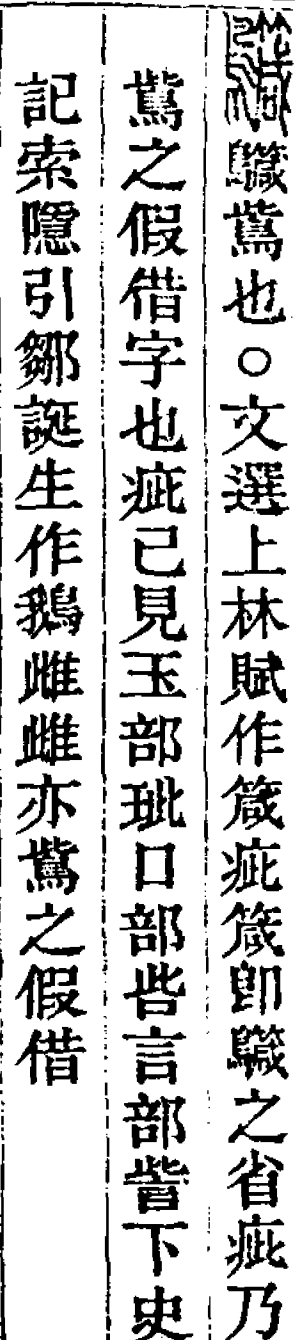 鴜也○文選上林賦作箴疵箴卽之省疵乃
鴜之假借字也疵己見玉部玼口部呰言部訾下史
記索隱引鄒誕生作鵝雌雌亦鴜之假借